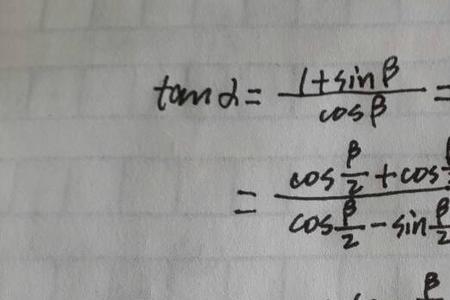 tan α = (1 + sin β) / (cos β) =
= (cos β/2 + cos β/2) / (cos β/2 − sin β/2)
β